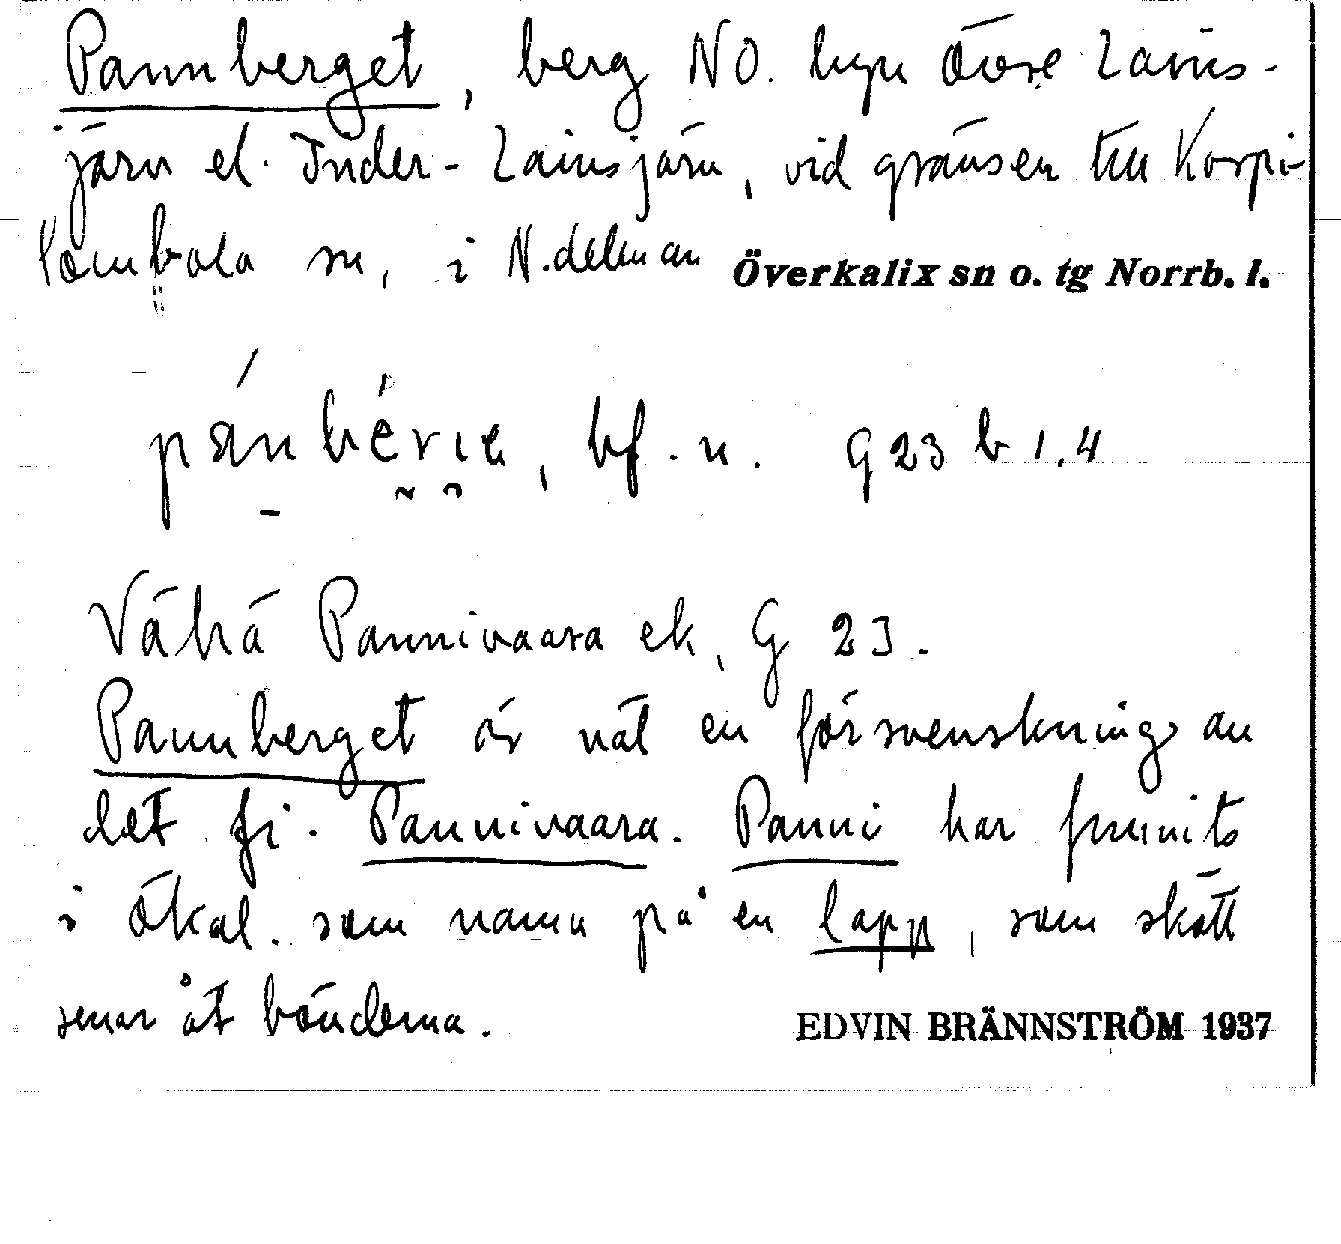 Pannberget, berg NO. byn Övre Lains-
järv el. Inder-Lainsjärv, vid gränsen till Korpi-
lombolo sn, i N.delen av Överkalix sn o. tg Norrb. l.
bf. n. G 23 b 1.4
Vähä Pannivaara ek, G 23.
Pannberget är väl en försvenskning av
det fi. Pannivaara. Panni har funnits
i Ökal. som namn på en lapp, som skött
renar åt bönderna.
EDVIN BRÄNNSTRÖM 1937